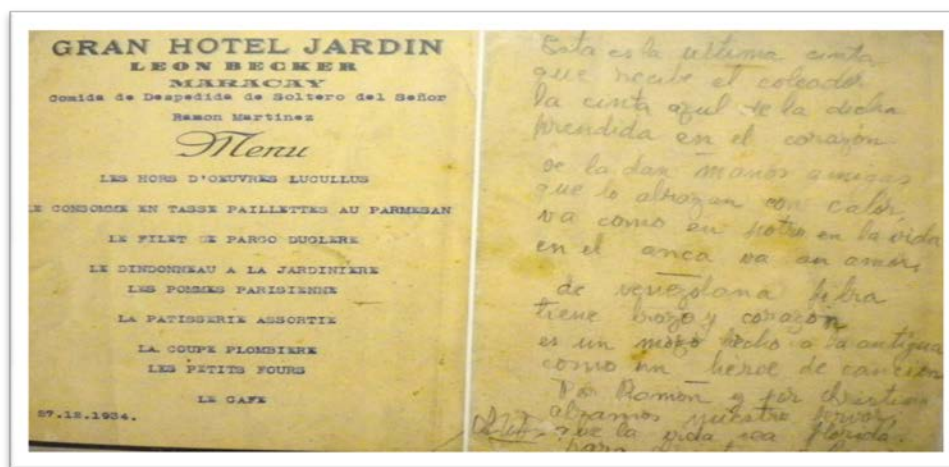 GRAN HOTEL JARDIN
LEON BECKER
MARACAY
Comida de Despedida de Soltero del Señor
Ramon Martinez
Menu
LES HORS D'OEUVRES LUCULLUS
LE CONSOMME EN TASSE PAILLETTES AU PARMESAN
LE FILET DE PARGO DUGLERE
LE DINDONNEAU A LA JARDINIERE
LES POMMES PARISIENNE
LA PATISSERIE ASSORTIE
LA COUPE PLOMBIERE
LES PETITS FOURS
LE CAFE
27.12.1934.
Esta es la ultima cinta
que recibe el coleador
la cinta azul de la dicha
prendida en el corazón
se la dan manos amigas
que lo abrazan con calor,
va como en potro en la vida
en el anca va un amor,
de venezolana fibra
tiene bozo y corazon
es un mozo hecho a la antigua
como un héroe de canción
Por Ramón y por Christina
alzamos nuestro fervor
que la vida sea florida
para